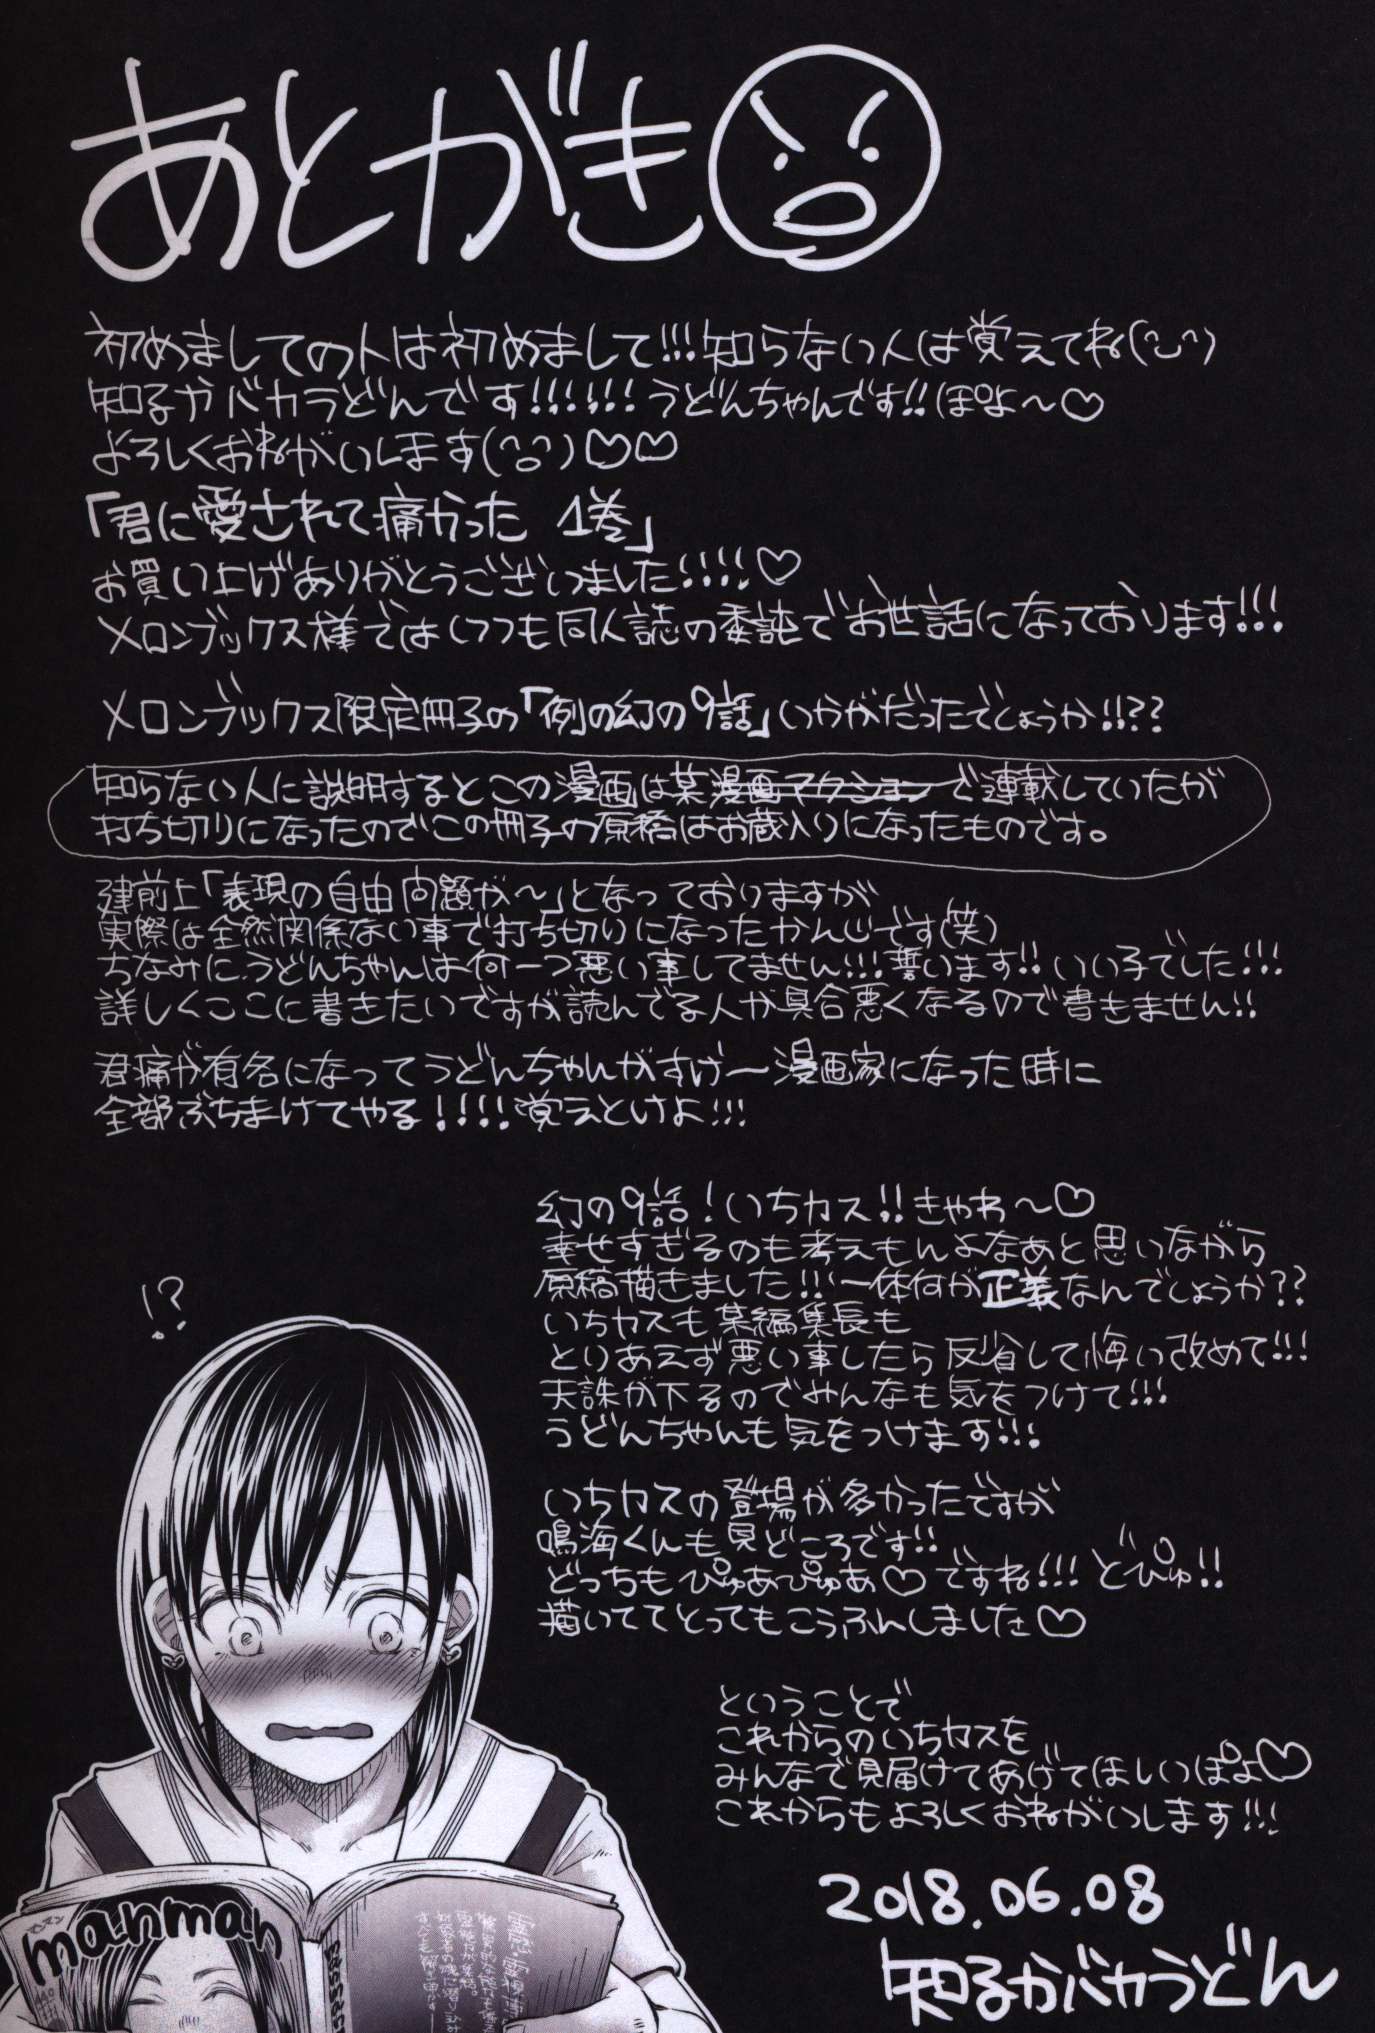 あとがき
初めましての人は初めまして!!!知らない人は覚えてね(^^)
知るかバカうどんです!!!!!!うどんちゃんです!!ぽよ〜♡
よろしくおねがいします(^^)♡♡
「君に愛されて痛かった 1巻」
お買い上げありがとうございました!!!!♡
メロンブックス様ではいつも同人誌の委託でお世話になっております!!!
メロンブックス限定冊子の「例の幻の9話」いかがだったでしょうか!!??
知らない人に説明するとこの漫画は某漫画アクションで連載していたが
打ち切りになったのでこの冊子の原稿はお蔵入りになったものです。
建前上「表現の自由問題が〜」となっておりますが
実際は全然関係ない事で打ち切りになったかんじです(笑)
ちなみにうどんちゃんは何一つ悪い事してません!!!誓います!!いい子でした!!!
詳しくここに書きたいですが読んでる人が具合悪くなるので書きません!!
君痛が有名になってうどんちゃんがすげー漫画家になった時に
全部ぶちまけてやる!!!!覚えとけよ!!!
幻の9話!いちカス!!きゃわ〜♡
幸せすぎるのも考えもんよなあと思いながら
原稿描きました!!!一体何が正義なんでしょうか??
いちカスも某編集長も
とりあえず悪い事したら反省して悔い改めて!!!
天誅が下るのでみんなも気をつけて!!!
うどんちゃんも気をつけます!!!
いちカスの登場が多かったですが
鳴海くんも見どころです!!
どっちもぴゅあぴゅあ♡ですね!!!どぴゅ!!
描いててとってもこうふんしました♡
ということで
これからのいちカスを
みんなで見届けてあげてほしいっぽよ♡
これからもよろしくおねがいします!!!
2018.06.08
知るかバカうどん
!?
manman